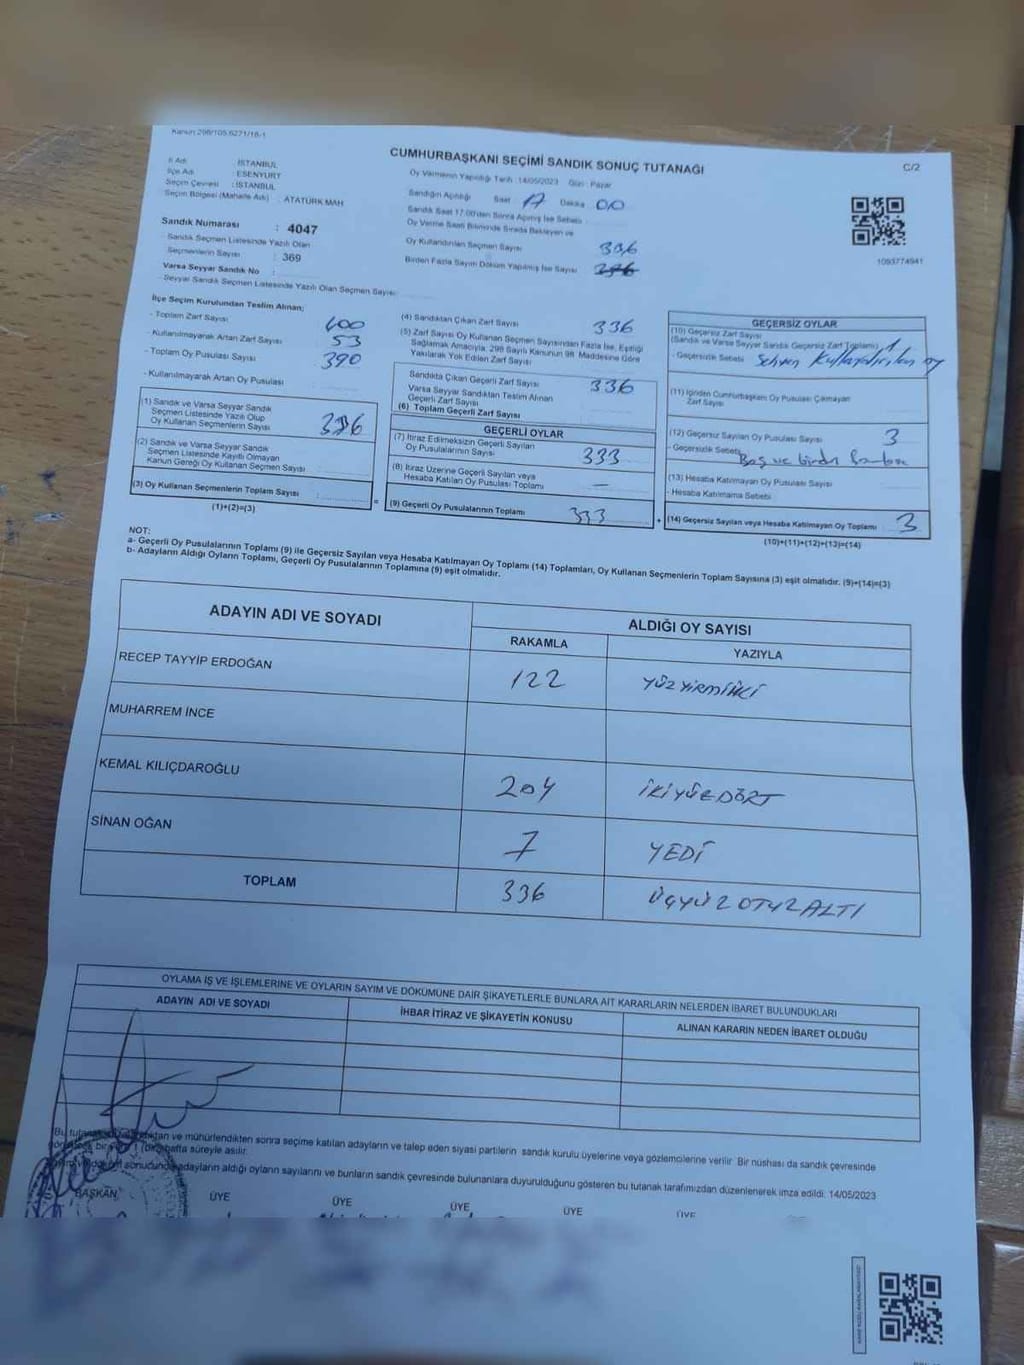 Kanun 298/105.6271/18-1
CUMHURBAŞKANI SEÇİMİ SANDIK SONUÇ TUTANAĞI
C/2
İl Adı : İSTANBUL
İlçe Adı : ESENYURT
Seçim Çevresi : İSTANBUL
Seçim Bölgesi (Mahalle Adı) : ATATÜRK MAH
Oy Vermenin Yapıldığı Tarih :14/05/2023 Gün : Pazar
Sandığın Açıldığı Saat 17 Dakika 00
Sandık Saat 17:00'den Sonra Açılmış İse Sebebi
Oy Verme Saati Bitiminde Sırada Bekleyen ve
Oy Kullandırılan Seçmen Sayısı 336
Birden Fazla Sayım Döküm Yapılmış İse Sayısı
1093774941
Sandık Numarası : 4047
- Sandık Seçmen Listesinde Yazılı Olan
Seçmenlerin Sayısı : 369
Varsa Seyyar Sandık No :
- Seyyar Sandık Seçmen Listesinde Yazılı Olan Seçmen Sayısı
İlçe Seçim Kurulundan Teslim Alınan;
- Toplam Zarf Sayısı 400
- Kullanılmayarak Artan Zarf Sayısı 53
- Toplam Oy Pusulası Sayısı 390
- Kullanılmayarak Artan Oy Pusulası :
(1) Sandık ve Varsa Seyyar Sandık
Seçmen Listesinde Yazılı Olup
Oy Kullanan Seçmenlerin Sayısı 336
(2) Sandık ve Varsa Seyyar Sandık
Seçmen Listesinde Kayıtlı Olmayan
Kanun Gereği Oy Kullanan Seçmen Sayısı :
(3) Oy Kullanan Seçmenlerin Toplam Sayısı :
(1)+(2)=(3)
(4) Sandıktan Çıkan Zarf Sayısı 336
(5) Zarf Sayısı Oy Kullanan Seçmen Sayısından Fazla İse, Eşitliği
Sağlamak Amacıyla, 298 Sayılı Kanunun 98. Maddesine Göre
Yakılarak Yok Edilen Zarf Sayısı
Sandıkta Çıkan Geçerli Zarf Sayısı 336
Varsa Seyyar Sandıktan Teslim Alınan
Geçerli Zarf Sayısı
(6) Toplam Geçerli Zarf Sayısı
GEÇERLİ OYLAR
(7) İtiraz Edilmeksizin Geçerli Sayılan
Oy Pusulalarının Sayısı 333
(8) İtiraz Üzerine Geçerli Sayılan veya
Hesaba Katılan Oy Pusulası Toplamı —
= (9) Geçerli Oy Pusulalarının Toplamı 333
GEÇERSİZ OYLAR
(10) Geçersiz Zarf Sayısı
(Sandık ve Varsa Seyyar Sandık Geçersiz Zarf Toplamı) 1
- Geçersizlik Sebebi Sehven Kullandırılan oy
(11) İçinden Cumhurbaşkanı Oy Pusulası Çıkmayan
Zarf Sayısı
(12) Geçersiz Sayılan Oy Pusulası Sayısı 3
- Geçersizlik Sebebi Boş ve birden fazla
(13) Hesaba Katılmayan Oy Pusulası Sayısı
- Hesaba Katılmama Sebebi
+ (14) Geçersiz Sayılan veya Hesaba Katılmayan Oy Toplamı 3
(10)+(11)+(12)+(13)=(14)
NOT:
a- Geçerli Oy Pusulalarının Toplamı (9) ile Geçersiz Sayılan veya Hesaba Katılmayan Oy Toplamı (14) Toplamları, Oy Kullanan Seçmenlerin Toplam Sayısına (3) eşit olmalıdır. (9)+(14)=(3)
b- Adayların Aldığı Oyların Toplamı, Geçerli Oy Pusulalarının Toplamına (9) eşit olmalıdır.
ADAYIN ADI VE SOYADI
ALDIĞI OY SAYISI
RAKAMLA
YAZIYLA
RECEP TAYYİP ERDOĞAN 122 YÜZYİRMİİKİ
MUHARREM İNCE
KEMAL KILIÇDAROĞLU 204 İKİYÜZDÖRT
SİNAN OĞAN 7 YEDİ
TOPLAM 336 ÜÇYÜZOTUZALTI
OYLAMA İŞ VE İŞLEMLERİNE VE OYLARIN SAYIM VE DÖKÜMÜNE DAİR ŞİKAYETLERLE BUNLARA AİT KARARLARIN NELERDEN İBARET BULUNDUKLARI
ADAYIN ADI VE SOYADI
İHBAR İTİRAZ VE ŞİKAYETİN KONUSU
ALINAN KARARIN NEDEN İBARET OLDUĞU
Bu ve mühürlendikten sonra seçime katılan adayların ve talep eden siyasi partilerin sandık kurulu üyelerine veya gözlemcilerine verilir Bir nüshası da sandık çevresinde
hafta süreyle asılır.
sonucunda adayların aldığı oyların sayılarını ve bunların sandık çevresinde bulunanlara duyurulduğunu gösteren bu tutanak tarafımızdan düzenlenerek imza edildi. 14/05/2023
BAŞKAN ÜYE ÜYE ÜYE ÜYE ÜYE